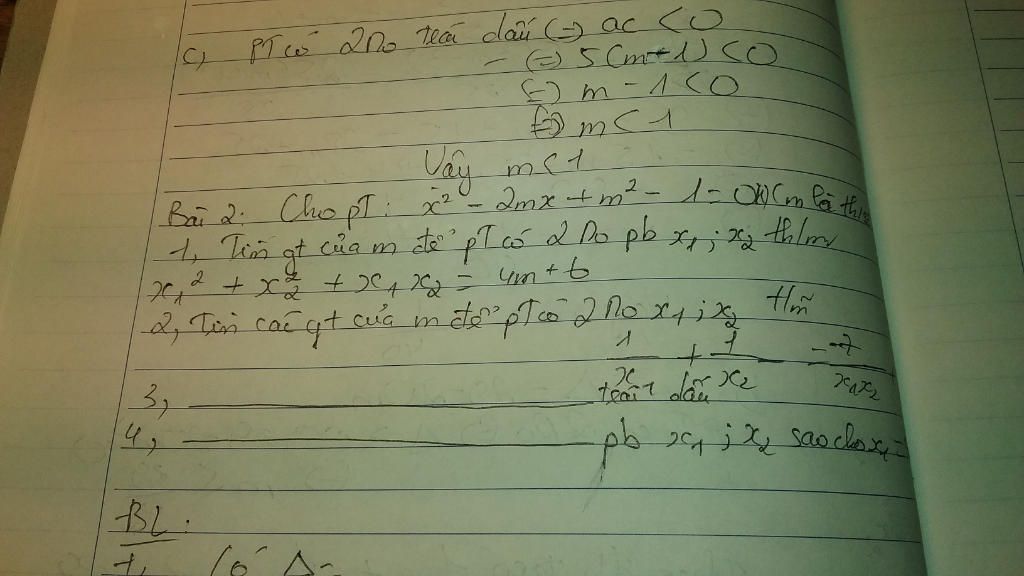 c, PT có 2 No trái dấu (=) ac < 0
(=) 5(m-1) < 0
(=) m - 1 < 0
(=) m < 1
Vậy m < 1
Bài 2: Cho pT: x² - 2mx + m² - 1 = 0 (m là
1, Tìm gt của m để pT có 2 No pb x₁ ; x₂ th/m
x₁² + x₂² + x₁x₂ = 4m + 6
2, Tìm các gt của m để pT có 2 No x₁ ; x₂ t/m
1/x₁ + 1/x₂ = -7/x₁x₂
3, ——— trái dấu
4, ——— pb x₁ ; x₂ sao cho x₁ =
BL:
1, Có Δ =